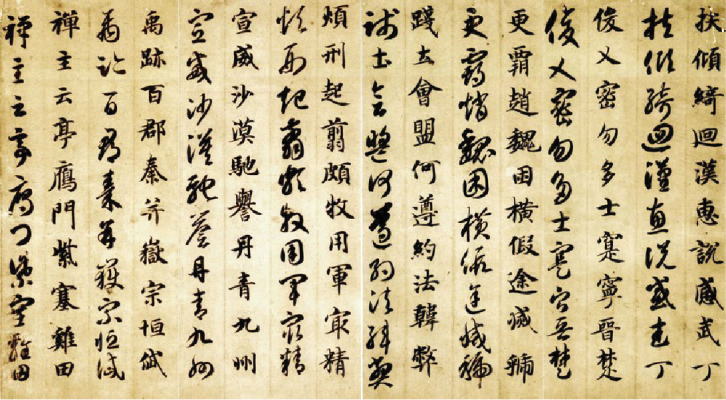 扶傾綺迴漢惠說感武丁
扶傾綺迴漢惠說感武丁
俊乂密勿多士寔寧晉楚
俊乂密勿多士寔寧晉楚
更霸趙魏困橫假途滅虢
更霸趙魏困橫假途滅虢
踐土會盟何遵約法韓弊
踐土會盟何遵約法韓弊
煩刑起翦頗牧用軍冣精
煩刑起翦頗牧用軍冣精
宣威沙漠馳譽丹青九州
宣威沙漠馳譽丹青九州
禹跡百郡秦并嶽宗恒岱
禹跡百郡秦并嶽宗恒岱
禪主云亭鴈門紫塞雞田
禪主云亭鴈門紫塞雞田